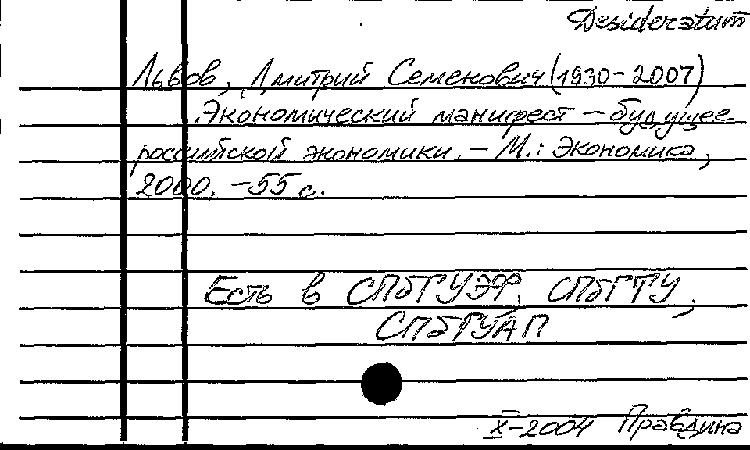 Desideratum
Львов, Дмитрий Семенович (1930-2007)
Экономический манифест - будущее
российской экономики. - М.: Экономика,
2000. - 55 с.
Есть в СПбГУЭФ, СПбГТУ,
СПбГУАП
X-2004 Правдина